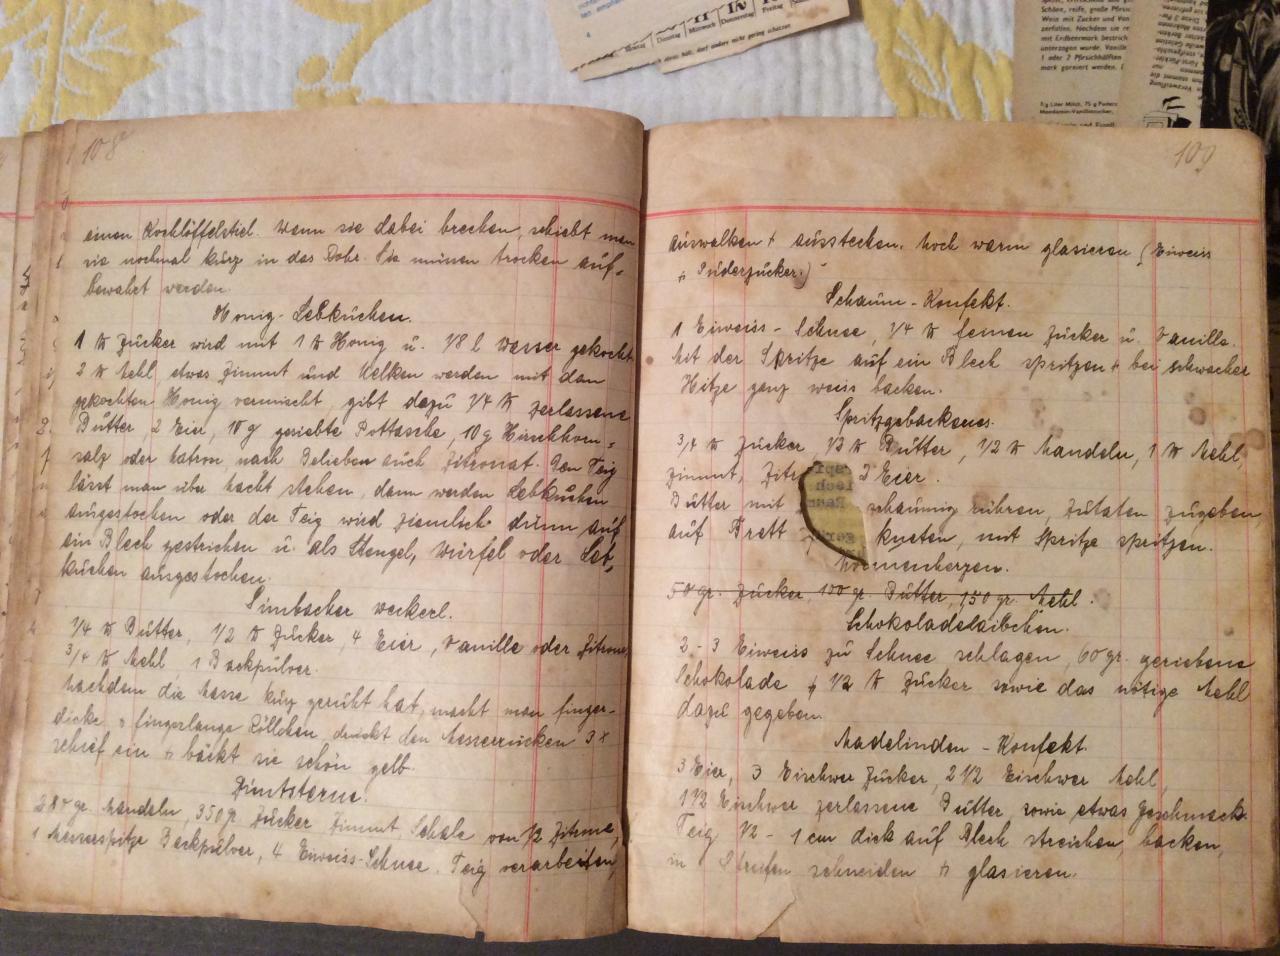 108
einen Kochlöffelstiel. Wenn sie dabei brechen, schiebt man
sie nochmal kurz in das Rohr. Sie müssen trocken auf-
bewahrt werden.
Honig-Lebkuchen.
1 ℔ Zucker wird mit 1 ℔ Honig u. 1/8 l Wasser gekocht
2 ℔ Mehl, etwas Zimmt und Nelken werden mit dem
gekochten Honig vermischt, gibt dazu 1/4 ℔ zerlassene
Butter, 2 Eier, 10 g geriebte Pottasche, 10 g Hirschhorn-
salz oder Natron, nach Belieben auch Zitronat. Den Teig
lässt man über Nacht stehen, dann werden Lebkuchen
ausgestochen oder der Teig wird ziemlich dünn auf
ein Blech gestrichen u. als Stengel, Würfel oder Leb-
kuchen ausgestochen.
Simbacher Weckerl.
1/4 ℔ Butter, 1/2 ℔ Zucker, 4 Eier, Vanille oder Zitrone
3/4 ℔ Mehl 1 Backpulver.
Nachdem die Masse kurz geruht hat, macht man finger-
dicke & fingerlange Röllchen, drückt den Messerrücken 3 x
schief ein & bäckt sie schön gelb.
Zimtsterne.
280 gr. Mandeln, 350 gr. Zucker Zimmt Schale von 1/2 Zitrone,
1 Messerspitze Backpulver, 4 Eiweiss-Schnee. Teig verarbeiten,
109
auswalken + ausstechen. Noch warm glasieren (Eiweiss
& Puderzucker.)
Schaum-Konfekt.
1 Eiweiss-Schnee, 1/4 ℔ feinen Zucker u. Vanille.
Mit der Spritze auf ein Blech spritzen + bei schwacher
Hitze ganz weiss backen.
Spritzgebackenes.
3/4 ℔ Zucker, 1/3 ℔ Butter, 1/2 ℔ Mandeln, 1 ℔ Mehl,
Zimmt, Zitr 2 Eier.
Butter mit schaumig rühren, Zutaten zugeben,
auf Brett kneten, mit Spritze spritzen.
Nonnenherzen.
50 gr. Zucker, 100 gr. Butter, 150 gr. Mehl.
Schokoladelaibchen.
2-3 Eiweiss zu Schnee schlagen, 60 gr. geriebene
Schokolade & 1/2 ℔ Zucker sowie das nötige Mehl
dazu gegeben.
Madelinden-Konfekt.
3 Eier, 3 Eischwer Zucker, 2 1/2 Eischwer Mehl,
1 1/2 Eischwer zerlassene Butter, sowie etwas Geschmack.
Teig 1/2 - 1 cm dick auf Blech streichen, backen,
in Streifen schneiden & glasieren.